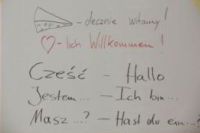 - decznie witamy!
- lich Willkommen!
Cześć - Hallo
Jestem... - Ich bin...
Masz...? - Hast du ein...?